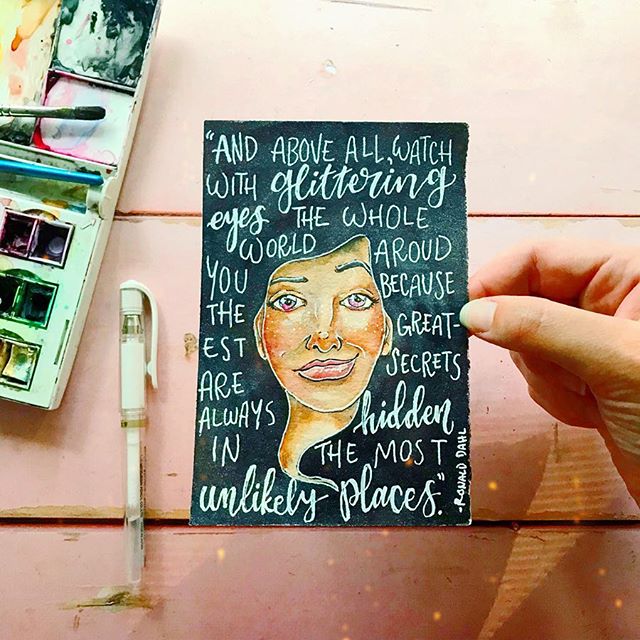 "AND ABOVE ALL, WATCH
WITH glittering
eyes THE WHOLE
WORLD AROUD
YOU BECAUSE
THE GREAT-
EST SECRETS
ARE
ALWAYS hidden
IN THE MOST
unlikely places."
-RONALD DAHL